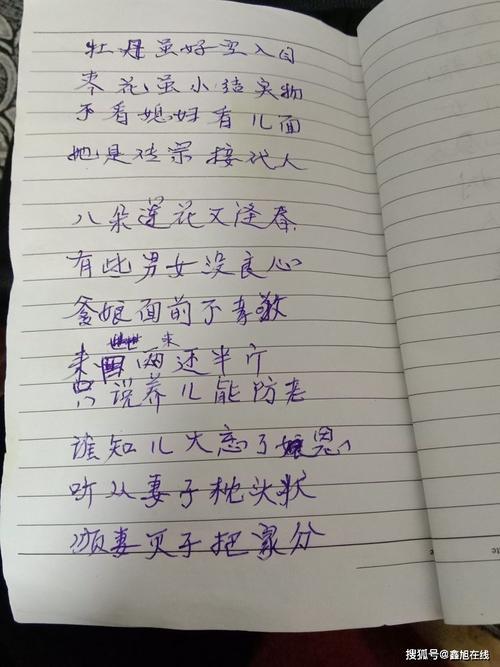 牡丹虽好空入目
枣花虽小结实物
不看媳妇看儿面
她是传宗接代人
八朵莲花又逢春
有些男女没良心
爹娘面前不孝敬
来
来 两还半斤
只说养儿能防老
谁知儿大忘了娘恩
听从妻子枕头状
领妻 子把家分
搜狐号@鑫旭在线